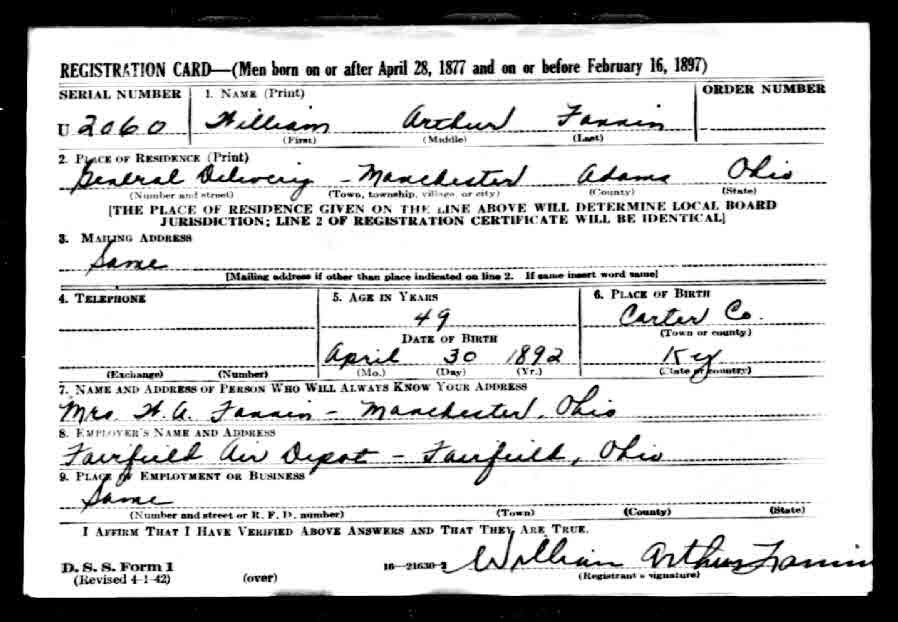 REGISTRATION CARD—(Men born on or after April 28, 1877 and on or before February 16, 1897)
SERIAL NUMBER 1. NAME (Print) ORDER NUMBER
U 2060 William Arthur Fannin
(First) (Middle) (Last)
2. PLACE OF RESIDENCE (Print)
General Delivery - Manchester Adams Ohio
(Number and street) (Town, township, village, or city) (County) (State)
[THE PLACE OF RESIDENCE GIVEN ON THE LINE ABOVE WILL DETERMINE LOCAL BOARD
JURISDICTION; LINE 2 OF REGISTRATION CERTIFICATE WILL BE IDENTICAL]
3. MAILING ADDRESS
Same
[Mailing address if other than place indicated on line 2. If same insert word same]
4. TELEPHONE 5. AGE IN YEARS 6. PLACE OF BIRTH
49 Carter Co.
DATE OF BIRTH (Town or county)
April 30 1892 Ky
(Exchange) (Number) (Mo.) (Day) (Yr.) (State or country)
7. NAME AND ADDRESS OF PERSON WHO WILL ALWAYS KNOW YOUR ADDRESS
Mrs. W. A. Fannin - Manchester, Ohio
8. EMPLOYER'S NAME AND ADDRESS
Fairfield Air Depot - Fairfield, Ohio
9. PLACE OF EMPLOYMENT OR BUSINESS
Same
(Number and street or R. F. D. number) (Town) (County) (State)
I AFFIRM THAT I HAVE VERIFIED ABOVE ANSWERS AND THAT THEY ARE TRUE.
D. S. S. Form 1 16—21630-2 William Arthur Fannin
(Revised 4-1-42) (over) (Registrant's signature)